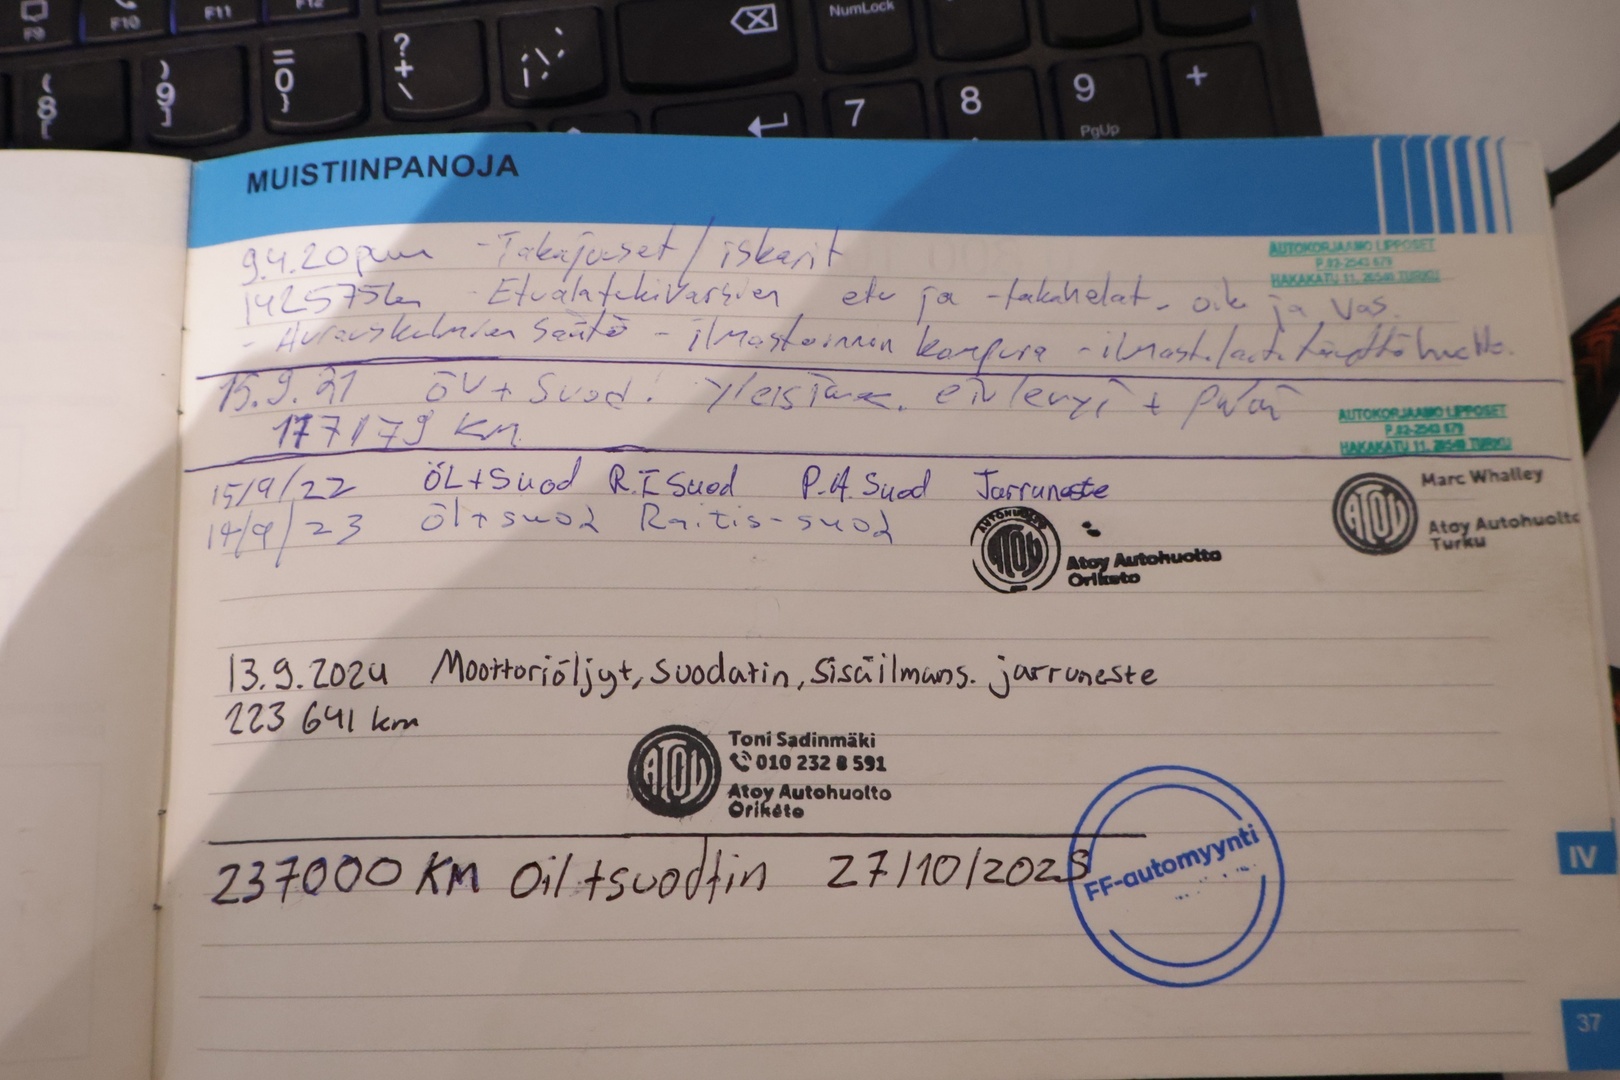 F9
F10
F11
F12
NumLock
( 8 [
) 9 ]
= 0 }
? + \
7
8
9 PgUp
+
MUISTIINPANOJA
9.4.20 -Takajouset/iskarit
AUTOKORJAAMO LIPPOSET
P.02-2543 679
HAKAKATU 11, 20540 TURKU
142575km - Etualatukivarsien etu ja -takahelat. oik ja vas.
- Aurauskulmien säätö - ilmastoinnin kompura
15.9.21 ÖV+Suod.
177179 KM
AUTOKORJAAMO LIPPOSET
P.02-2543 679
HAKAKATU 11, 20540 TURKU
15/9/22 ÖL+Suod R.I Suod P.A. Suod Jarruneste
Marc Whalley
Atoy Autohuolto
Turku
14/9/23 Öl+suod Raitis-suod
AUTOHUOLTO
ATOY
Atoy Autohuolto
Oriketo
13.9.2024 Moottoriöljyt, suodatin, Sisäilmans. jarruneste
223 641 km
ATOY
Toni Sadinmäki
010 232 8 591
Atoy Autohuolto
Oriketo
237000 KM Oil+suodtin 27/10/2025
FF-automyynti
IV
37